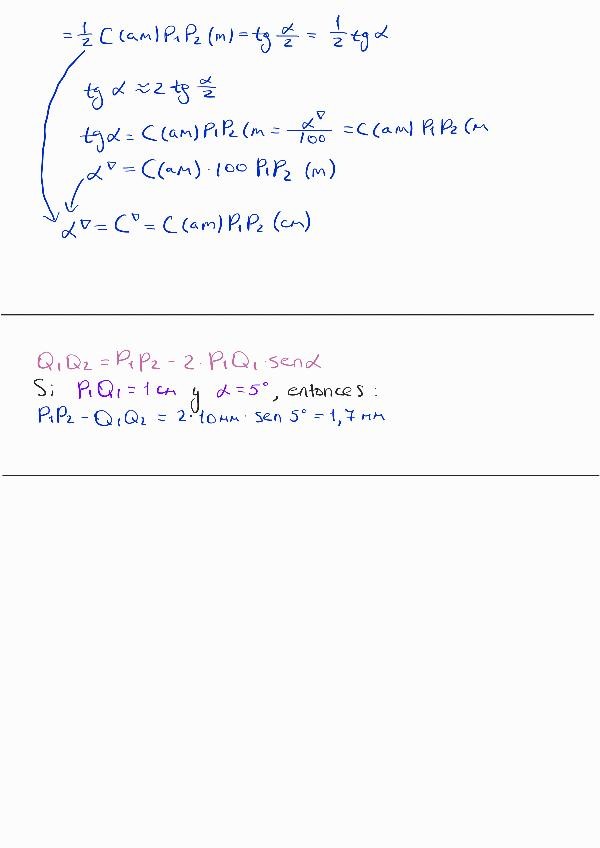 = 1/2 C (am) P₁P₂ (m) = tg α/2 = 1/2 tg α
tg α ≈ 2 tg α/2
tg α = C (am) P₁P₂ (m = α^∇/100 = C (am) P₁P₂ (m
α^∇ = C (am) · 100 P₁P₂ (m)
α^∇ = C^∇ = C (am) P₁P₂ (cm)
Q₁Q₂ = P₁P₂ - 2 · P₁Q₁ · sen α
Si P₁Q₁ = 1 cm y α = 5°, entonces :
P₁P₂ - Q₁Q₂ = 2 · 10 mm · sen 5° = 1,7 mm